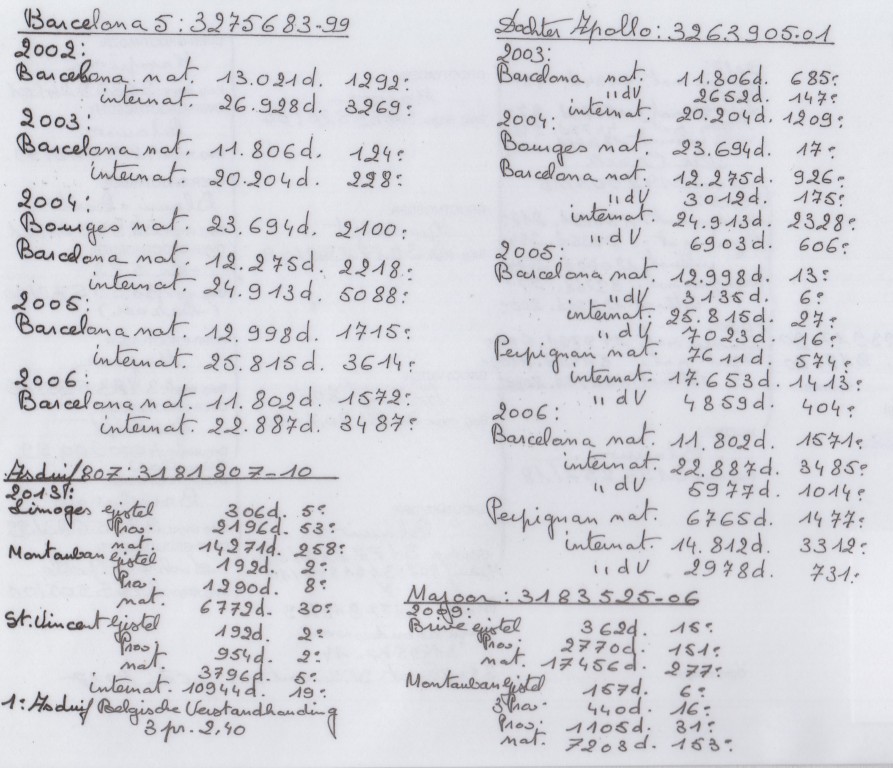 Barcelona 5: 3275683-99
2002:
Barcelona nat. 13.021d. 1292e
internat. 26.928d. 3269e
2003:
Barcelona nat. 11.806d. 124e
internat. 20.204d. 228e
2004:
Bourges nat. 23.694d. 2100e
Barcelona nat. 12.275d. 2218e
internat. 24.913d. 5088e
2005:
Barcelona nat. 12.998d. 1715e
internat. 25.815d. 3614e
2006:
Barcelona nat. 11.802d. 1572e
internat. 22.887d. 3487e
Asduif 807: 3181807-10
2013:
Limoges epstel 306d. 5e
Prov. 2196d. 53e
nat. 14271d. 258e
Montauban epstel 192d. 2e
Prov. 1290d. 8e
nat. 6772d. 30e
St. Vincent epstel 192d. 2e
Prov. 954d. 2e
nat. 3796d. 5e
internat. 10944d. 19e
1e Asduif Belgische Verstandhouding
3 pr. 2,40
Dochter Apollo: 3263905-01
2003:
Barcelona nat. 11.806d. 685e
"dV 2652d. 147e
internat. 20.204d. 1209e
2004:
Bourges nat. 23.694d. 17e
Barcelona nat. 12.275d. 926e
"dV 3012d. 175e
internat. 24.913d. 2328e
"dV 6903d. 606e
2005:
Barcelona nat. 12.998d. 13e
"dV 3135d. 6e
internat. 25.815d. 27e
"dV 7023d. 16e
Perpignan nat. 7611d. 574e
internat. 17.653d. 1413e
"dV 4859d. 404e
2006:
Barcelona nat. 11.802d. 1571e
internat. 22.887d. 3485e
"dV 5977d. 1014e
Perpignan nat. 6765d. 1477e
internat. 14.812d. 3312e
"dV 2978d. 731e
Majoor: 3183525-06
2009:
Brive epstel 362d. 15e
Prov. 2770d. 151e
nat. 17456d. 277e
Montauban epstel 157d. 6e
3 Prov. 440d. 16e
Prov. 1105d. 31e
nat. 7203d. 153e